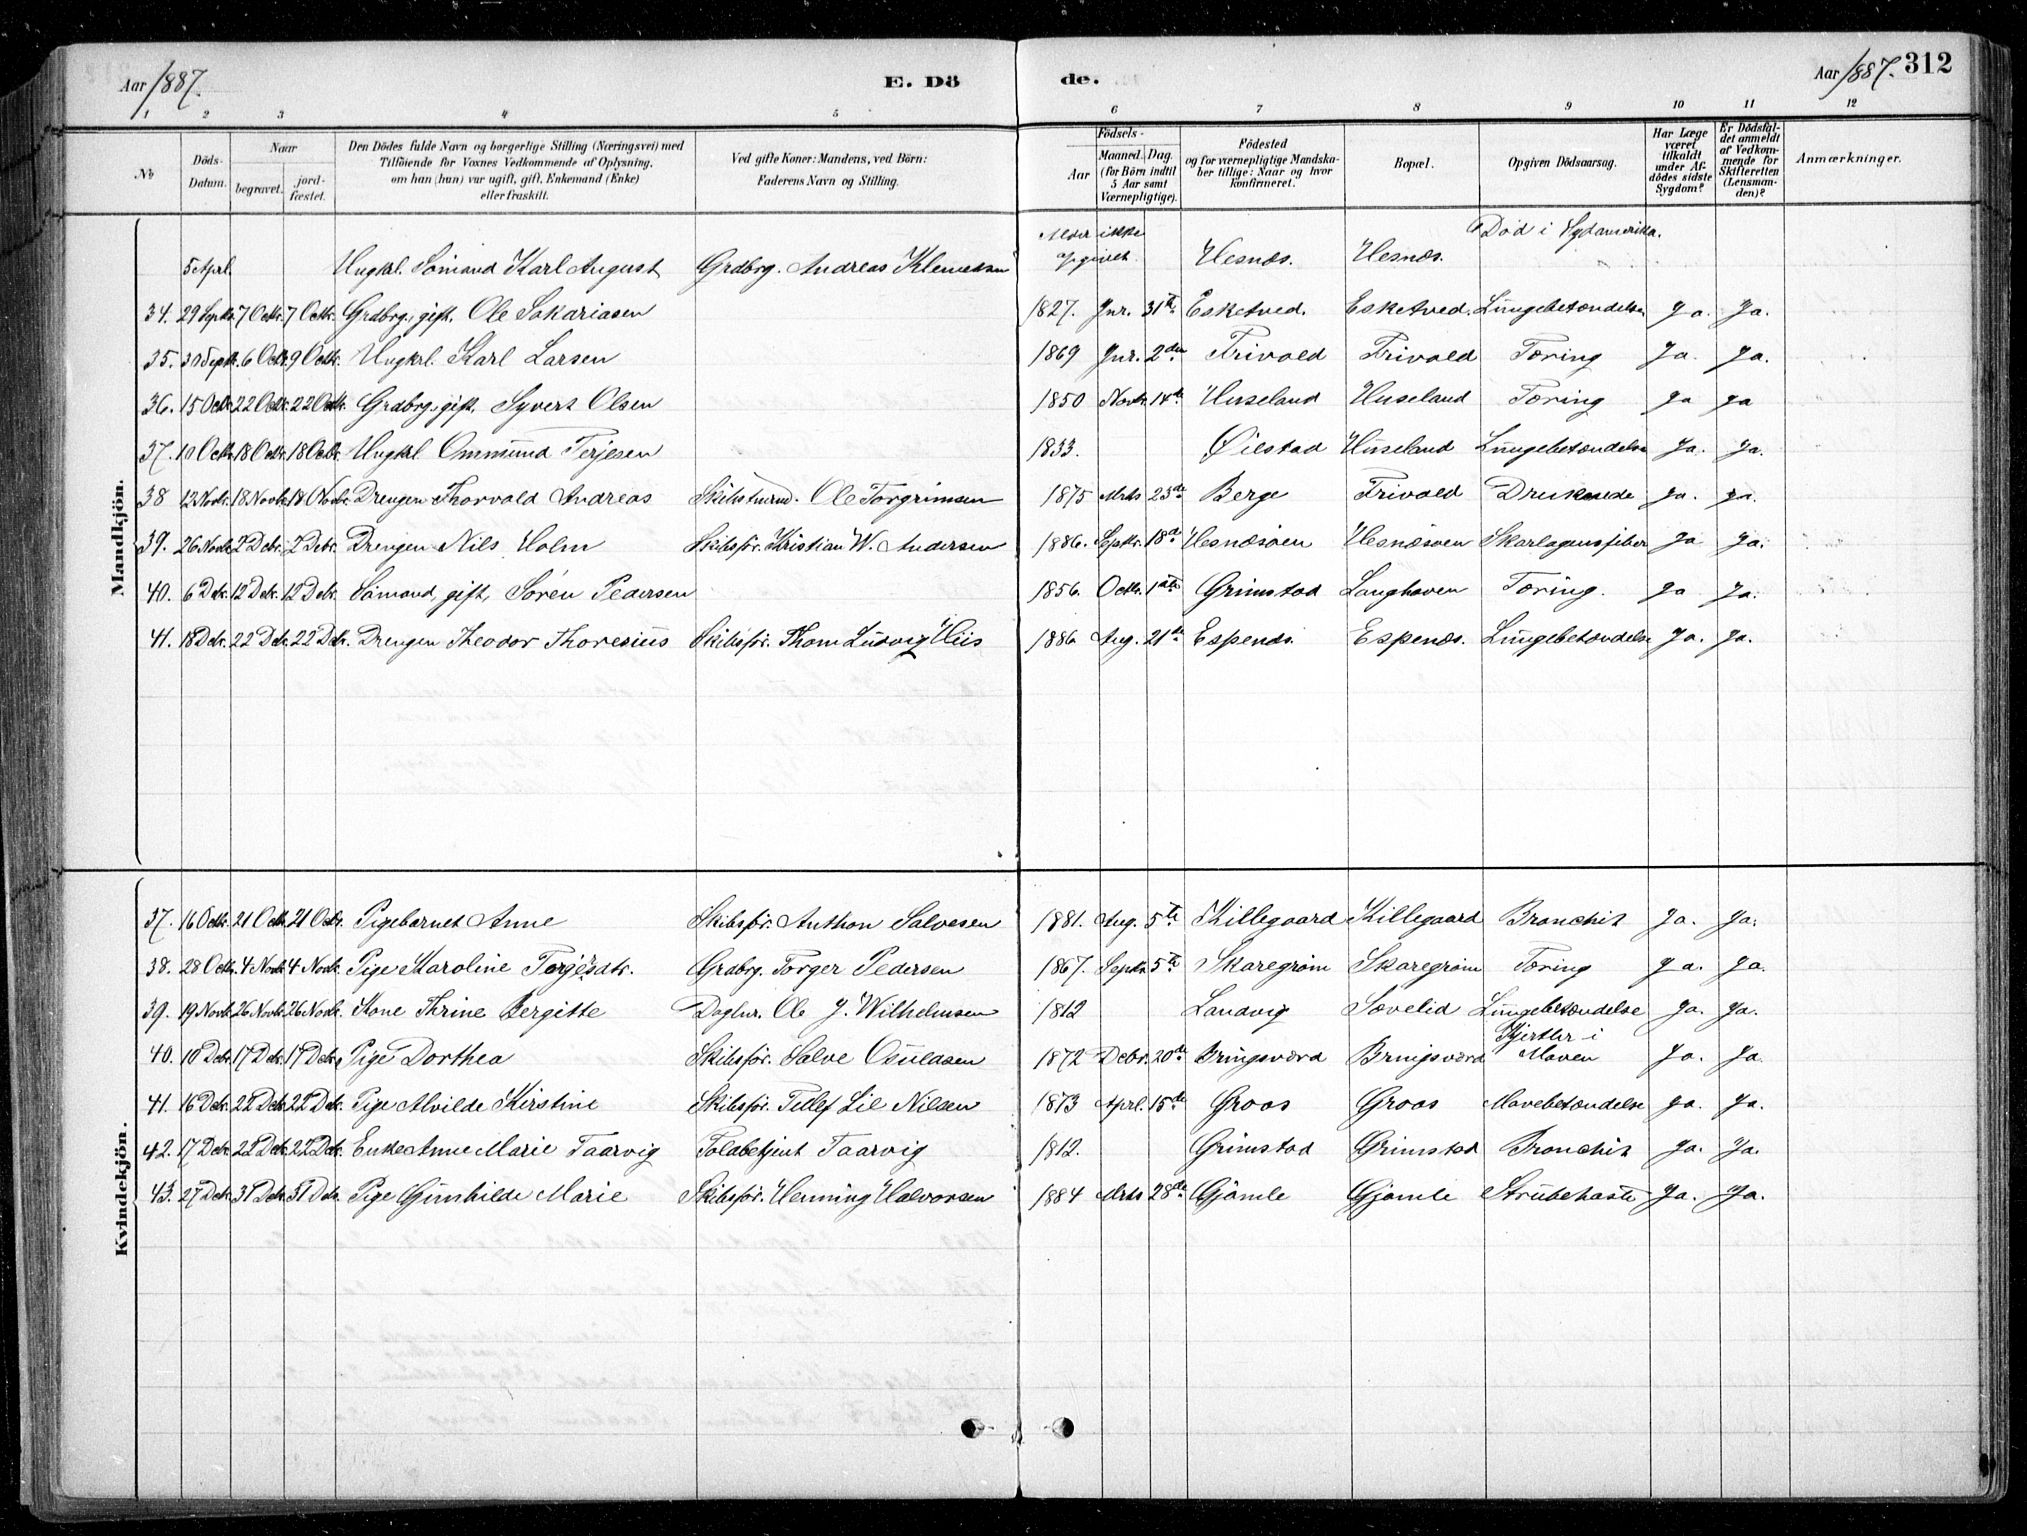 Aar 1887. E. Dö de. Aar 1887. 312
1 2 3 4 5 6 7 8 9 10 11 12
No Döds-Datum. Naar begravet. jordfæstet. Den Dödes fulde Navn og borgerlige Stilling (Næringsvei) med Tilföiende for Voxnes Vedkommende af Oplysning, om han (hun) var ugift, gift, Enkemand (Enke) eller fraskilt. Ved gifte Koner: Mandens, ved Börn: Faderens Navn og Stilling. Födsels- Aar Maaned. Dag. (for Börn indtil 5 Aar samt Værnepligtige). Födested og for værnepligtige Mandskaber tillige: Naar og hvor konfirmeret. Bopæl. Opgiven Dödsaarsag. Har Læge været tilkaldt under Afdödes sidste Sygdom? Er Dödsfaldet anmeldt af Vedkommende for Skifteretten (Lensmanden)? Anmærkninger.
Mandkjön.
5 Aprl. Ungkl. Sömand Karl August Grdbrg. Andreas Klemetsen Alder ikke opgivet. Hesnæs. Hesnæs. Död i Sydamerika.
34. 29 Septbr. 7 Octbr. 7 Octbr. Grdbrg., gift, Ole Sakariasen 1827. Jnr. 31te Esketved. Esketved. Lungebetændelse Ja. Ja.
35. 30 Septbr. 6 Octbr. 9 Octbr. Ungkrl. Karl Larsen 1869 Jnr. 2den Frivold Frivold Tæring Ja. Ja.
36. 15 Octbr. 22 Octbr. 22 Octbr. Grdbrg., gift, Syvert Olsen 1850 Novbr. 14de Huseland Huseland Tæring Ja Ja
37. 10 Octbr. 18 Octbr. 18 Octbr. Ungkl. Ommund Terjesen 1833. Øiestad Huseland Lungebetændelse Ja. Ja.
38 12 Novbr. 18 Novbr. 18 Novbr. Drengen Thorvald Andreas Skibstmrd. Ole Torgrimsen 1875 Mrts 23de Berge Frivold Druknede Ja. Ja.
39. 26 Novbr. 2 Debr. 2 Debr. Drengen Nils Holm Skibsför. Kristian W. Andersen 1886. Septbr. 18de Hesnæsøen Hesnæsøen Skarlagensfeber Ja Ja.
40. 6 Debr. 12 Debr. 12 Debr. Sömand, gift, Sören Pedersen 1856. Octbr. 1ste Grimstad Langhaven Tæring. Ja Ja.
41. 18 Debr. 22 Debr. 22 Debr. Drengen Theodor Thoresius Skibsför. Thom Ludvig Hiis 1886 Aug. 21de Espenæs. Espenæs. Lungebetændelse Ja. Ja.
Kvindekjön.
37. 16 Octbr. 21 Octbr. 21 Octbr. Pigebarnet Anne Skibsför. Anthon Salvesen 1881. Aug. 5te Killegaard Killegaard Bronchit Ja. Ja.
38. 28 Octbr. 4 Novbr. 4 Novbr. Pige Karoline Torjesdtr. Grdbrg. Torger Pedersen 1867. Septbr. 5te Skaregröm Skaregröm Tæring Ja. Ja.
39. 19 Novbr. 26 Novbr. 26 Novbr. Kone Thrine Bergitte Daglnr. Ole J. Wilhelmsen 1812 Landvig Sævelid Lungebetændelse Ja. Ja.
40. 10 Debr. 17 Debr. 17 Debr. Pige Dorthea Skibsför. Salve Osuldsen 1872 Debr. 20de Bringsværd Bringsværd Kjertler i Maven Ja. Ja.
41. 16 Debr. 22 Debr. 22 Debr. Pige Alvilde Kirstine Skibsför. Tellef Lie Nilsen 1873 Aprl. 15de Groos Groos Mavebetændelse Ja. Ja.
42. 17 Debr. 22 Debr. 22 Debr. Enke Anne Marie Taarvig Toldbetjent Taarvig 1812. Grimstad Grimstad Bronchit Ja. Ja.
43. 27 Debr. 31 Debr. 31 Debr. Pige Gunhilde Marie Skibsför. Henning Halvorsen 1884 Mrts 28de Gjömle Gjömle Strubehoste Ja. Ja.